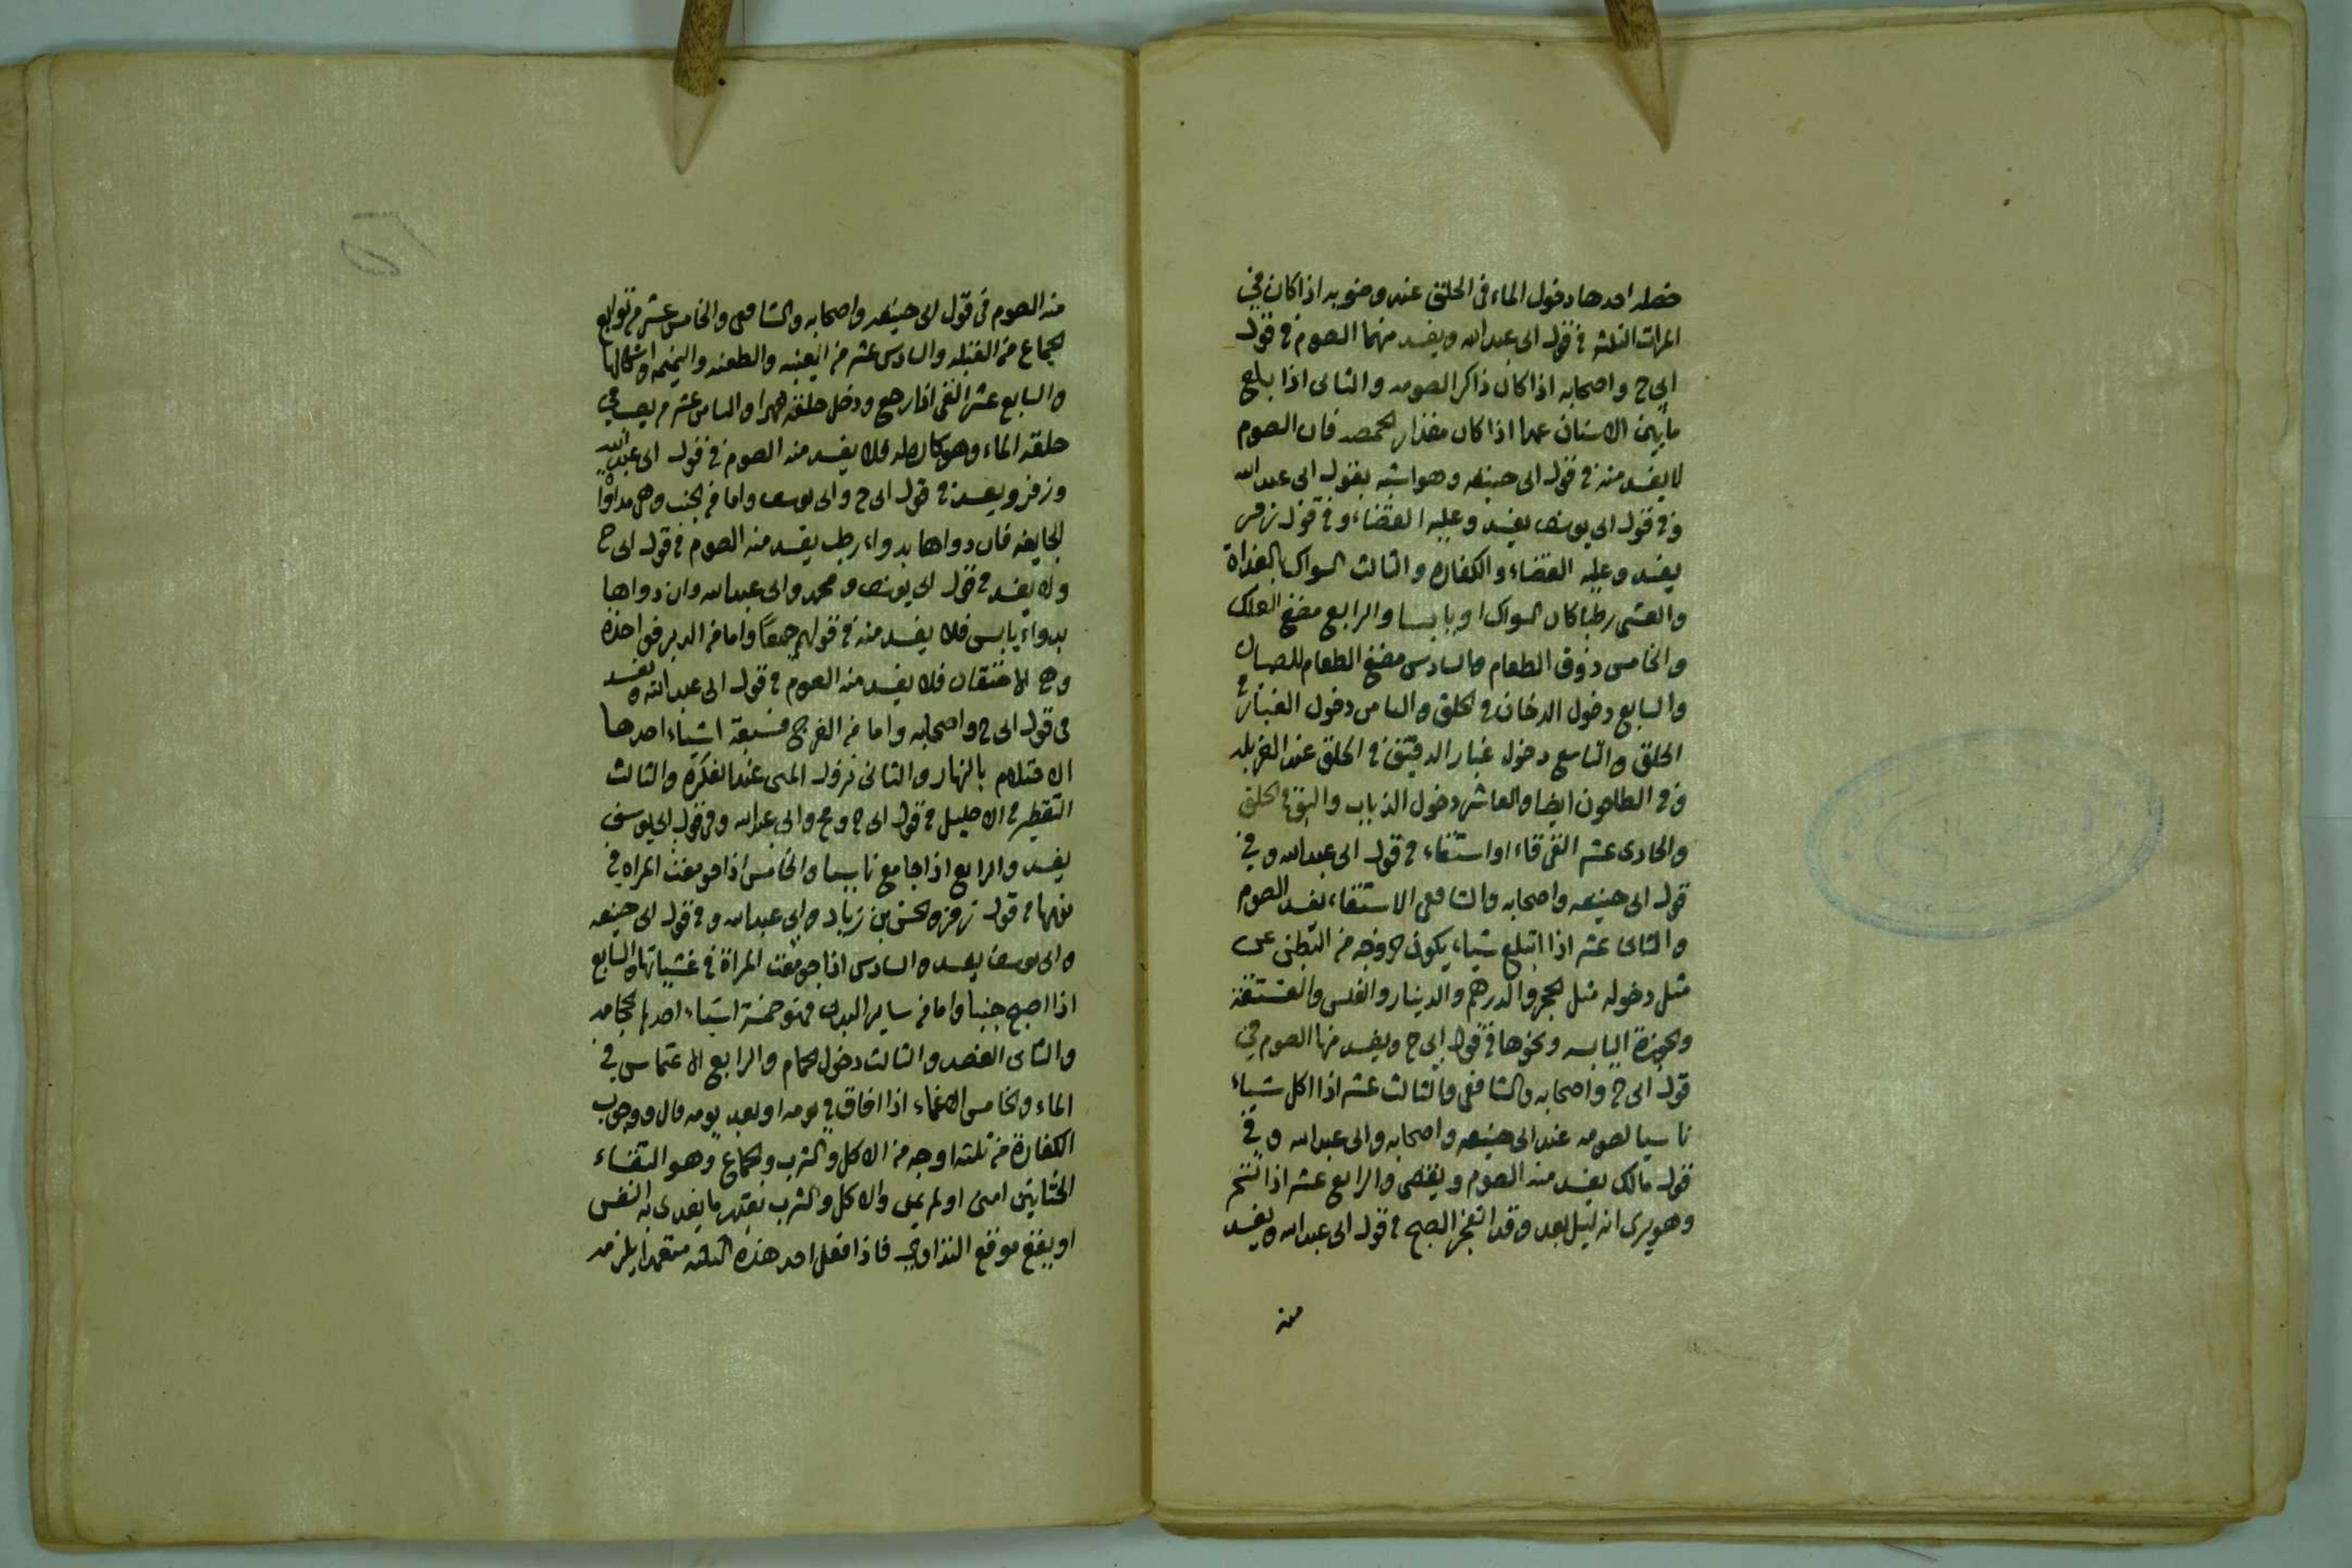 خصله احدها دخول الماء فى الحلق عند وضوءه اذا كان فى
المرات الثلثه فى قول ابى عبد الله ويفسد منهما الصوم فى قول
ابى ح واصحابه اذا كان ذاكرا لصومه والثانى اذا بلع
ما بين الاسنان عمدا اذا كان مقدار الحمصه فان الصوم
لا يفسد منه فى قول ابى حنيفه وهو اشبه بقول ابى عبد الله
وفى قول ابى يوسف يفسد وعليه القضاء وفى قول زفر
يفسد وعليه القضاء والكفاره والثالث السواك بالغداة
والعشى رطبا كان السواك او يابسا والرابع مضغ العلك
والخامس ذوق الطعام والسادس مضغ الطعام للصبيان
والسابع دخول الدخان فى الحلق والثامن دخول الغبار فى
الحلق والتاسع دخول غبار الدقيق فى الحلق عند الغربله
وفى الطاحون ايضا والعاشر دخول الذباب والبق فى الحلق
والحادى عشر القى قاء او استقاء فى قول ابى عبد الله وفى
قول ابى حنيفه واصحابه والشافعى الاستقاء يفسد الصوم
والثانى عشر اذا ابتلع شياء يكون خروجه من البطن على
مثل دخوله مثل الحجر والدرهم والدينار والفلس والفستقة
والجوزة اليابسه ونحوها فى قول ابى ح ويفسد منها الصوم فى
قول ابى ح واصحابه والشافعى والثالث عشر اذا اكل شياء
ناسيا لصومه عند ابى حنيفه واصحابه وابى عبد الله وفى
قول مالك يفسد منه الصوم ويقضى والرابع عشر اذا تسحر
وهو يرى انه ليل بعد وقد انفجر الصبح فى قول ابى عبد الله ويفسد
منه
منه الصوم فى قول ابى حنيفه واصحابه والشافعى والخامس عشر من توابع
الجماع من القبله والسادس عشر من الغيبه والطعنه والنميمه واشكالها
والسابع عشر القى اذا رجع ودخل حلقه والثامن عشر من يصب فى
حلقه الماء وهو كاره له فلا يفسد منه الصوم فى قول ابى عبد الله
وزفر ويفسد فى قول ابى ح وابى يوسف واما من الجنب وهى مداواة
الجايفه فان دواها بدواء رطب يفسد منه الصوم فى قول ابى ح
ولا يفسد فى قول ابى يوسف ومحمد وابى عبد الله وان دواها
بدواء يابس فلا يفسد منه فى قولهم جميعا واما من الدبر فواحدة
وهى الاحتقان فلا يفسد منه الصوم فى قول ابى عبد الله ويفسد
فى قول ابى ح واصحابه واما من الفرج فسبعة اشياء احدها
الاحتلام بالنهار والثانى نزول المنى عند الفكرة والثالث
التقطير فى الاحليل فى قول ابى ح و م وابى عبد الله وفى قول ابى يوسف
يفسد والرابع اذا جامع ناسيا والخامس اذا جومعت المراه فى
نومها فى قول زفر والحسن بن زياد وابى عبد الله وفى قول ابى حنيفه
وابى يوسف يفسد والسادس اذا جومعت المراة فى غشيانها والسابع
اذا اصبح جنبا واما من ساير البدن فهو خمسة اشياء احدها الحجامه
والثانى الفصد والثالث دخول الحمام والرابع الاغتماس فى
الماء والخامس الاغماء اذا افاق فى يومه او بعد يومه قال ووجوب
الكفارة من ثلثه اوجه من الاكل والشرب والجماع وهو التقاء
الختانين امنى او لم يمنى والاكل والشرب بقدر ما يغدى به النفس
او يقع موقع التداوى فاذا فعل احد هذه الثلثه متعمدا يلزمه